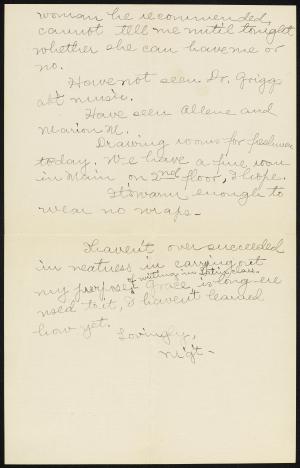 woman he recommended,
cannot tell me until tonight
whether she can have me or
no.
Have not seen Dr. Griggs
abt music.
Have seen Allene and
Marion M.
Drawing rooms for freshmen
today. We have a fine room
in Main on 2nd floor, I hope.
It's warm enough to
wear no wraps -
Haven't over succeeded
in neatness in carrying out
my purpose of writing in Latin class.
Grace is long-ere
used to it, I haven't learned
how yet.
Lovingly,
M'g't -